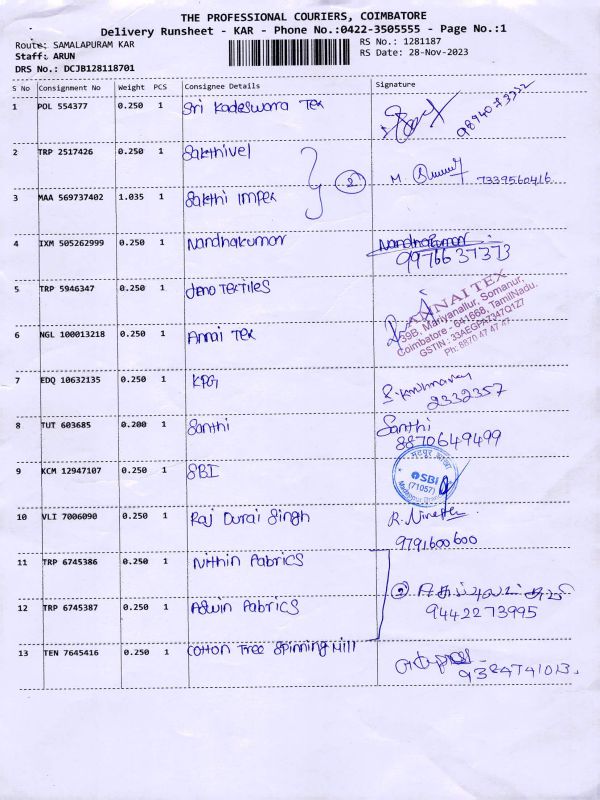 THE PROFESSIONAL COURIERS, COIMBATORE
Delivery Runsheet - KAR - Phone No.:0422-3505555 - Page No.:1
Route: SAMALAPURAM KAR
Staff: ARUN
DRS No.: DCJB128118701
RS No.: 1281187
RS Date: 28-Nov-2023
S No Consignment No Weight PCS Consignee Details Signature
1 POL 554377 0.250 1 Sri Kadeswara Tex
2 TRP 2517426 0.250 1 Sakthivel 2 M 7339560416
3 MAA 569737402 1.035 1 Sakthi Impex
4 IXM 505262999 0.250 1 Nandhakumar Nandhakumar
9976637373
5 TRP 5946347 0.250 1 Textiles
ANNAI TEX
39B, Mariyanallur, Somanur,
Coimbatore - 641668, TamilNadu.
GSTIN : 33AEGPA7347Q1Z7
Ph: 8870 47 47 47
6 NGL 100013218 0.250 1 Annai Tex
7 EDQ 10632135 0.250 1 KPG
2332357
8 TUT 603685 0.200 1 Santhi Santhi
8870649499
9 KCM 12947107 0.250 1 SBI
SBI
(71057)
10 VLI 7006090 0.250 1 Raj Durai Singh R.
9791600600
11 TRP 6745386 0.250 1 Nithin Fabrics 2
12 TRP 6745387 0.250 1 Aswin Fabrics 9442273995
13 TEN 7645416 0.250 1 Cotton Tree Spinning Mill
9384741013